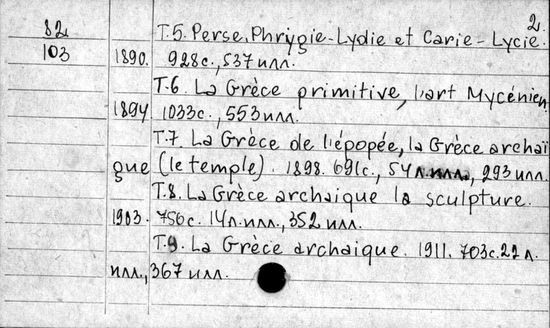 2.
82 Т.5. Perse, Phrygie-Lydie et Carie-Lycie.
103 1890. 928с., 537 илл.
Т.6. La Grèce primitive, l'art Mycénien
1894 1033с., 553 илл.
Т.7. La Grèce de l'épopée, la Grèce archaï
que (le temple). 1898. 691с., 54 л. илл., 293 илл.
Т.8. La Grèce archaique la sculpture.
1903. 756с. 14 л. илл., 352 илл.
Т.9. La Grèce archaique. 1911. 703с. 22 л.
илл., 367 илл.